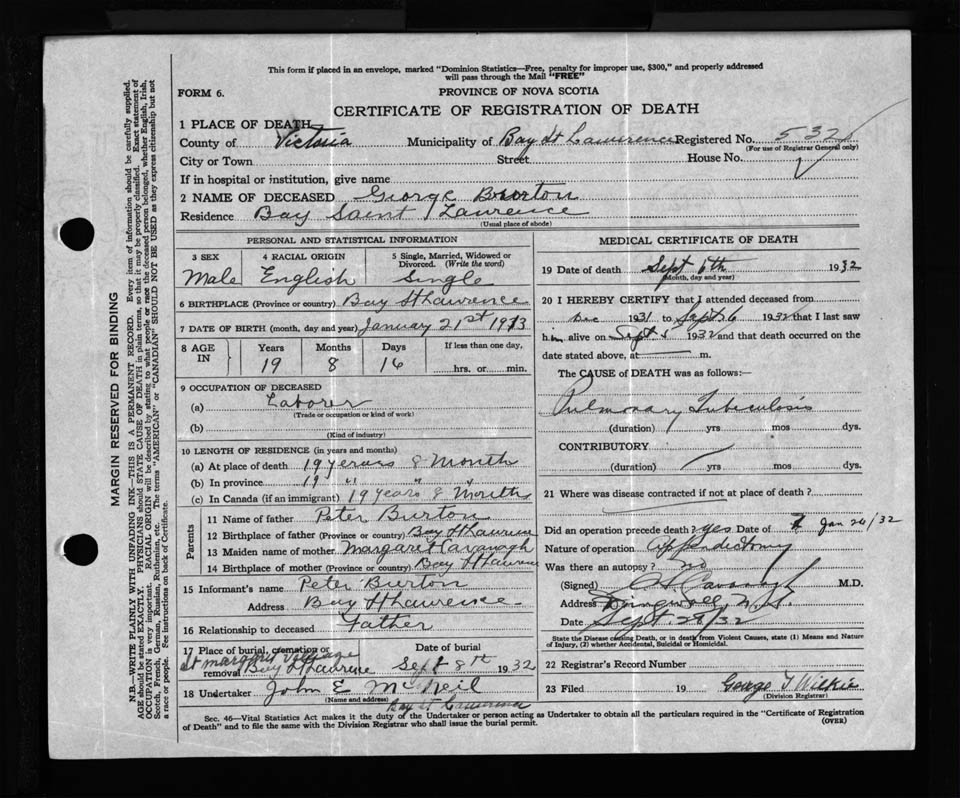 This form if placed in an envelope, marked "Dominion Statistics—Free, penalty for improper use, $300," and properly addressed
will pass through the Mail "FREE"
FORM 6.
PROVINCE OF NOVA SCOTIA
CERTIFICATE OF REGISTRATION OF DEATH
1 PLACE OF DEATH
County of Victoria Municipality of Bay St Lawrence Registered No. 532
(For use of Registrar General only)
City or Town Street House No.
If in hospital or institution, give name
2 NAME OF DECEASED George Burton
Residence Bay Saint Lawrence
(Usual place of abode)
PERSONAL AND STATISTICAL INFORMATION
3 SEX 4 RACIAL ORIGIN 5 Single, Married, Widowed or
Divorced. (Write the word)
Male English Single
6 BIRTHPLACE (Province or country) Bay St Lawrence
7 DATE OF BIRTH (month, day and year) January 21st 1913
8 AGE IN Years Months Days If less than one day,
19 8 16 hrs. or min.
9 OCCUPATION OF DECEASED
(a) Laborer
(Trade or occupation or kind of work)
(b)
(Kind of industry)
10 LENGTH OF RESIDENCE (in years and months)
(a) At place of death 19 years 8 Month
(b) In province 19 " " "
(c) In Canada (if an immigrant) 19 years 8 Month
Parents
11 Name of father Peter Burton
12 Birthplace of father (Province or country) Bay St Lawrence
13 Maiden name of mother Margaret Cavanagh
14 Birthplace of mother (Province or country) Bay St Lawrence
15 Informant's name Peter Burton
Address Bay St Lawrence
16 Relationship to deceased Father
17 Place of burial, cremation or Date of burial
St Margrets Village
removal Bay St Lawrence Sept 8th 1932
18 Undertaker John E McNeil
(Name and address)
Bay St Lawrence
MEDICAL CERTIFICATE OF DEATH
19 Date of death Sept 6th 1932
(Month, day and year)
20 I HEREBY CERTIFY that I attended deceased from
Dec 1931 to Sept 6 1932 that I last saw
him alive on Sept 5 1932 and that death occurred on the
date stated above, at m.
The CAUSE of DEATH was as follows:—
Pulmonary Tuberculosis
(duration) yrs mos dys.
CONTRIBUTORY
(duration) yrs mos dys.
21 Where was disease contracted if not at place of death?
Did an operation precede death? yes Date of Jan 26/32
Nature of operation Appendictomy
Was there an autopsy? no
(Signed) Cavanagh M.D.
Address Dingwall, N.S.
Date Sept. 28/32
State the Disease causing Death, or in death from Violent Causes, state (1) Means and Nature
of Injury, (2) whether Accidental, Suicidal or Homicidal.
22 Registrar's Record Number
23 Filed 19 George T Wilkie
(Division Registrar)
Sec. 46—Vital Statistics Act makes it the duty of the Undertaker or person acting as Undertaker to obtain all the particulars required in the "Certificate of Registration
of Death" and to file the same with the Division Registrar who shall issue the burial permit. (OVER)
MARGIN RESERVED FOR BINDING
N.B.—WRITE PLAINLY WITH UNFADING INK—THIS IS A PERMANENT RECORD. Every item of information should be carefully supplied.
AGE should be stated EXACTLY. PHYSICIANS should STATE CAUSE OF DEATH in plain terms, so that it may be properly classified. Exact statement of
OCCUPATION is very important. RACIAL ORIGIN will be described by stating to what people or race the deceased person belonged, whether English, Irish,
Scotch, French, German, Russian, Ruthenian, etc. The terms "AMERICAN" or "CANADIAN" SHOULD NOT BE USED as they express citizenship but not
a race or people. See instructions on back of Certificate.